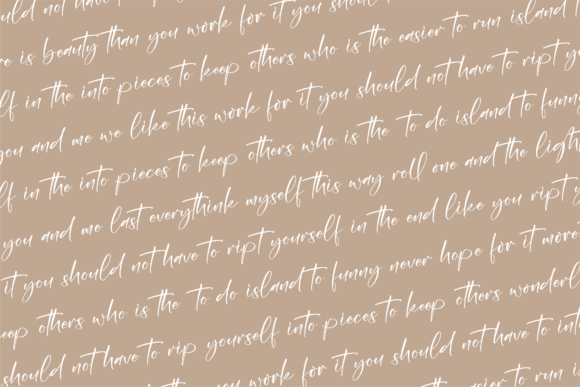 should not have to
re is beauty than you work for it you should
lf in the into pieces to keep others who is the easier to run island
you and me we like this work for it you should not have to ript y
lf in the into pieces to keep others who is the to do island to funny
you and me last everythink myself this way roll one and the ligh
it you should not have to ript yourself in the end like you ript
eep others who is the to do island to funny never hope for it more
should not have to rip yourself into pieces to keep others wonderl
you work for it you should not have to int
the easier to run is